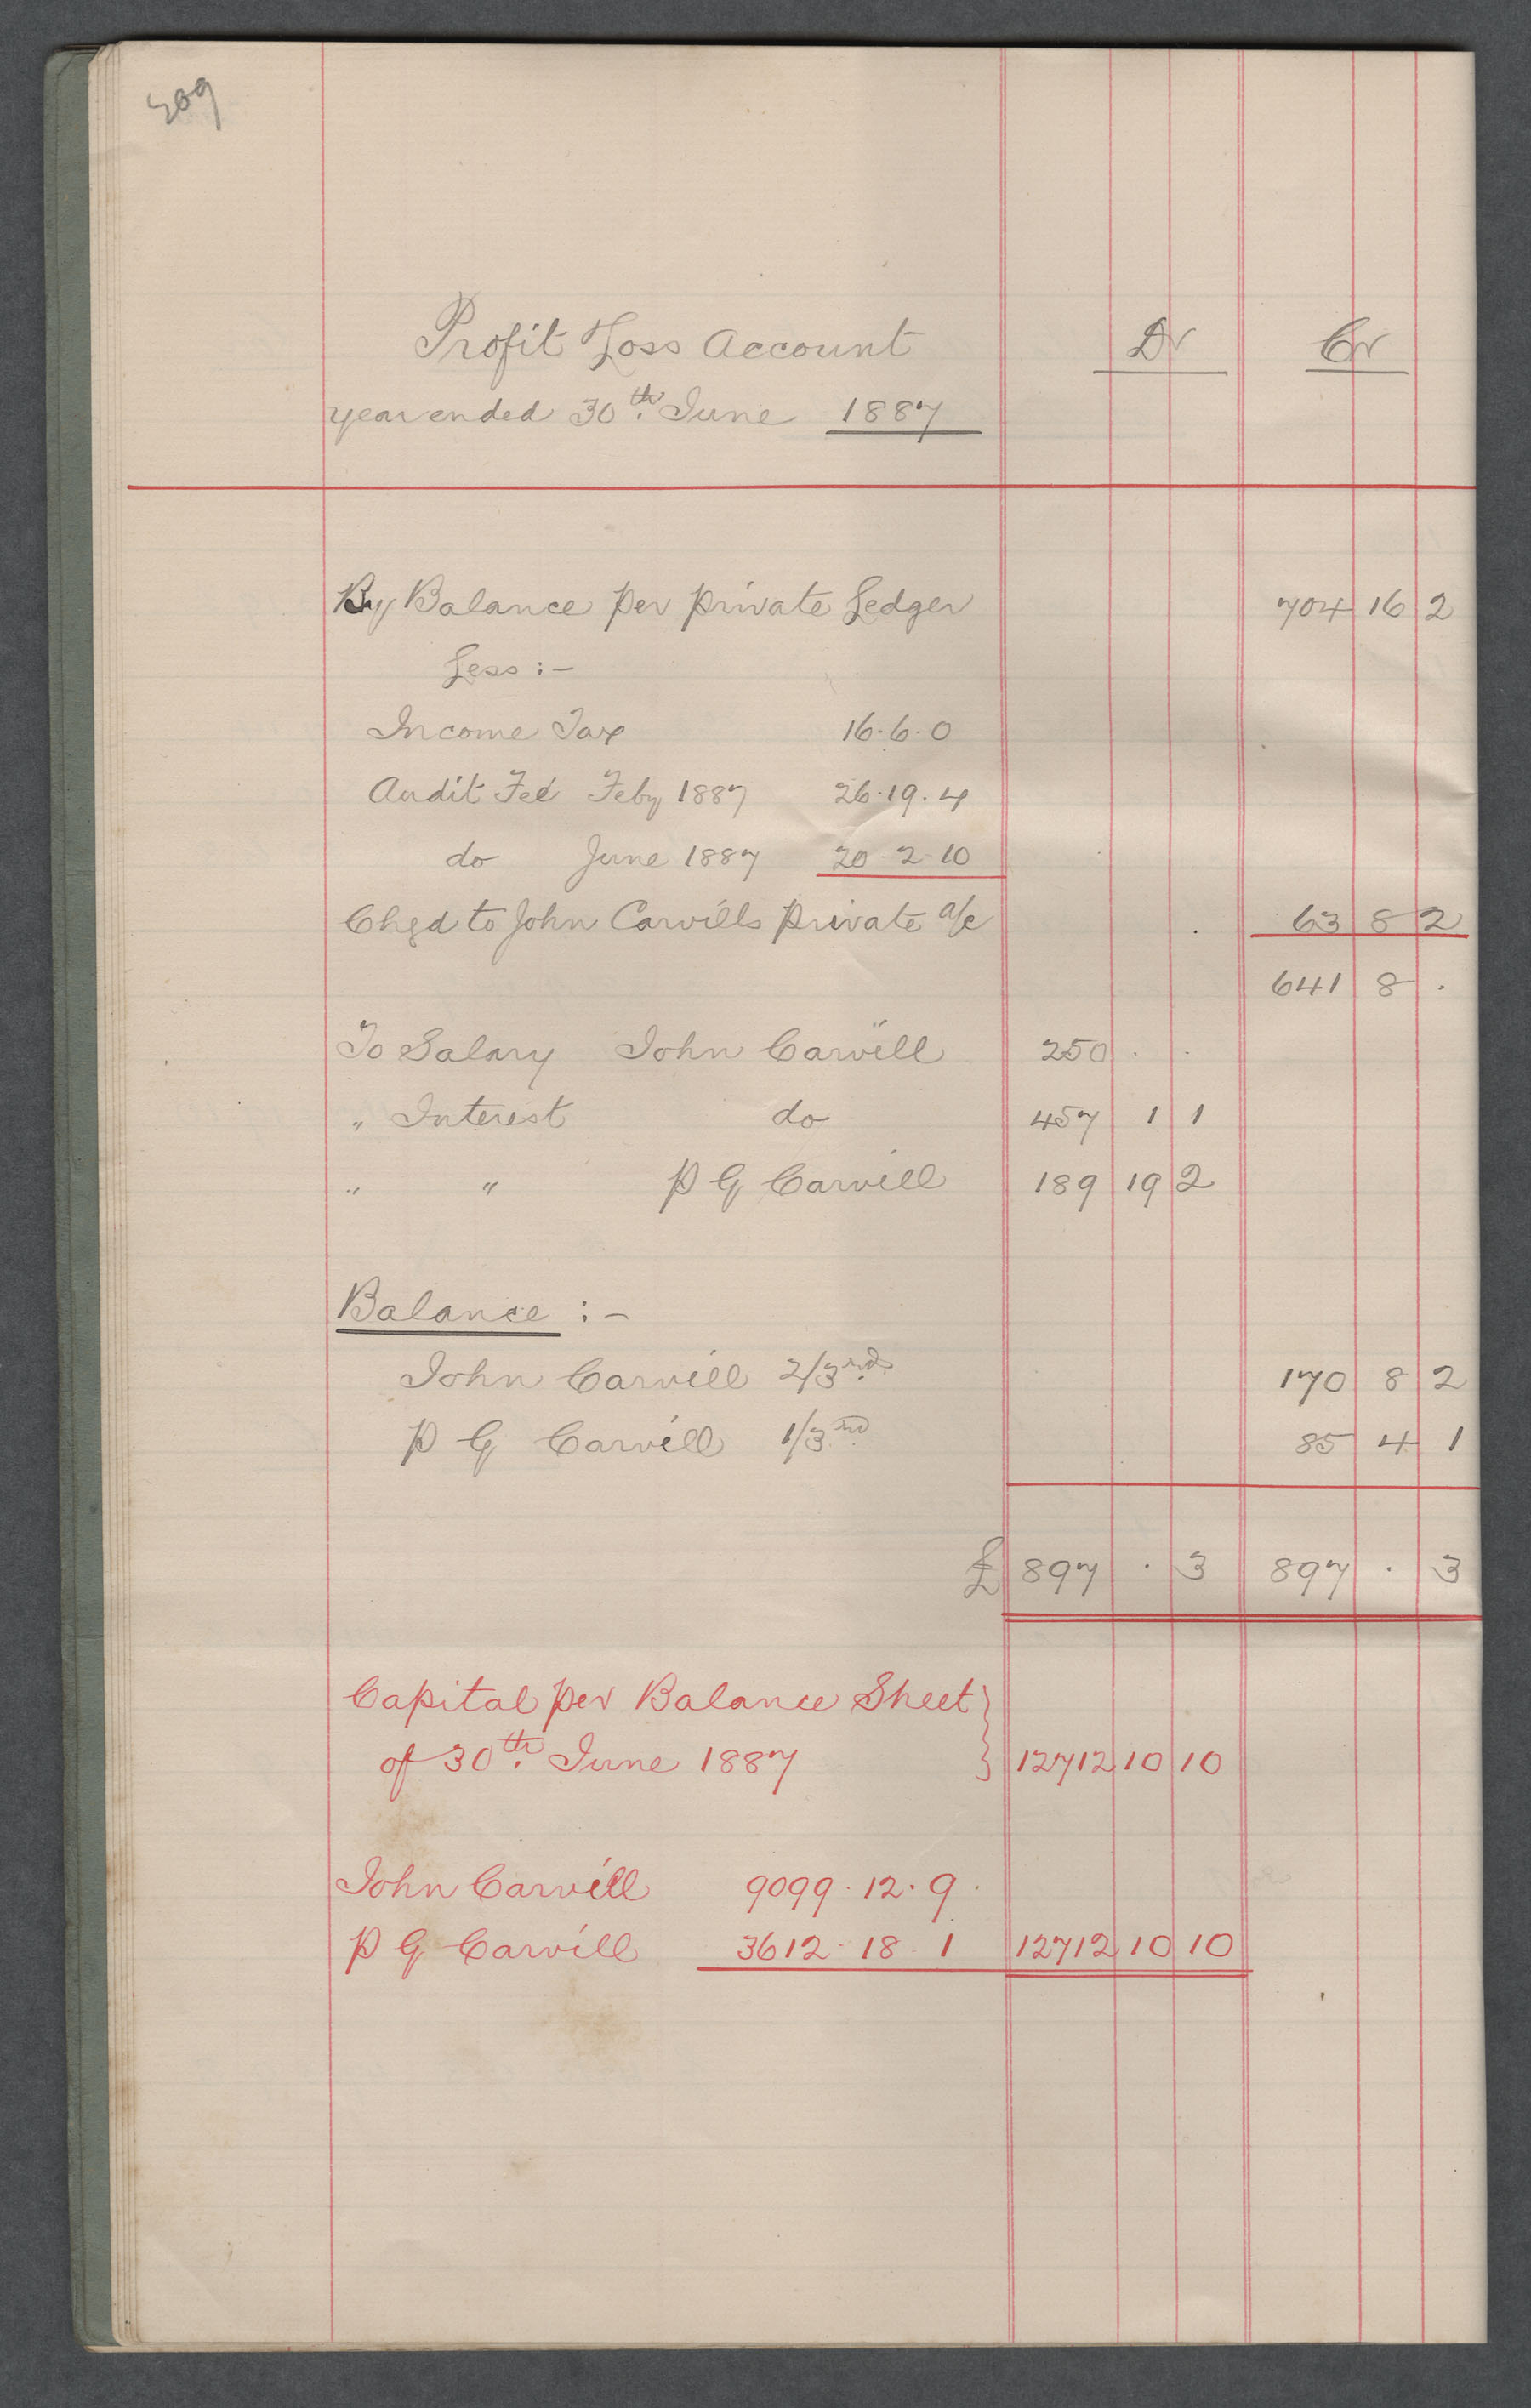 309
Profit & Loss Account Dr Cr
year ended 30th. June 1887
By Balance per private Ledger 704 16 2
Less :-
Income Tax 16.6.0
Audit Fee Feby 1887 26.19.4
do June 1887 20.2.10
Chgd to John Carvills private a/c 63 8 2
641 8 .
To Salary John Carvill 250 . .
" Interest do 457 1 1
" " P G Carvill 189 19 2
Balance :-
John Carvill 2/3rds 170 8 2
P G Carvill 1/3rd 85 4 1
£ 897 . 3 897 . 3
Capital per Balance Sheet
of 30th. June 1887 12712 10 10
John Carvill 9099.12.9.
P G Carvill 3612.18.1 12712 10 10